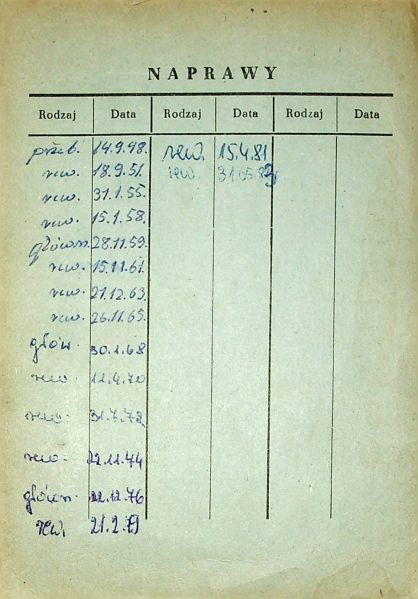 NAPRAWY
Rodzaj Data Rodzaj Data Rodzaj Data
przeb. 14.9.48. rew. 15.4.81
rew. 18.9.51. rew. 31.05.83
rew. 31.1.55.
rew. 15.1.58.
główn. 28.11.59.
rew. 15.11.61.
rew. 21.12.63.
rew. 26.11.65.
głów. 30.1.68
rew. 12.4.70
rew. 31.7.72
rew. 22.11.74
główn. 22.12.76
rew. 21.2.79